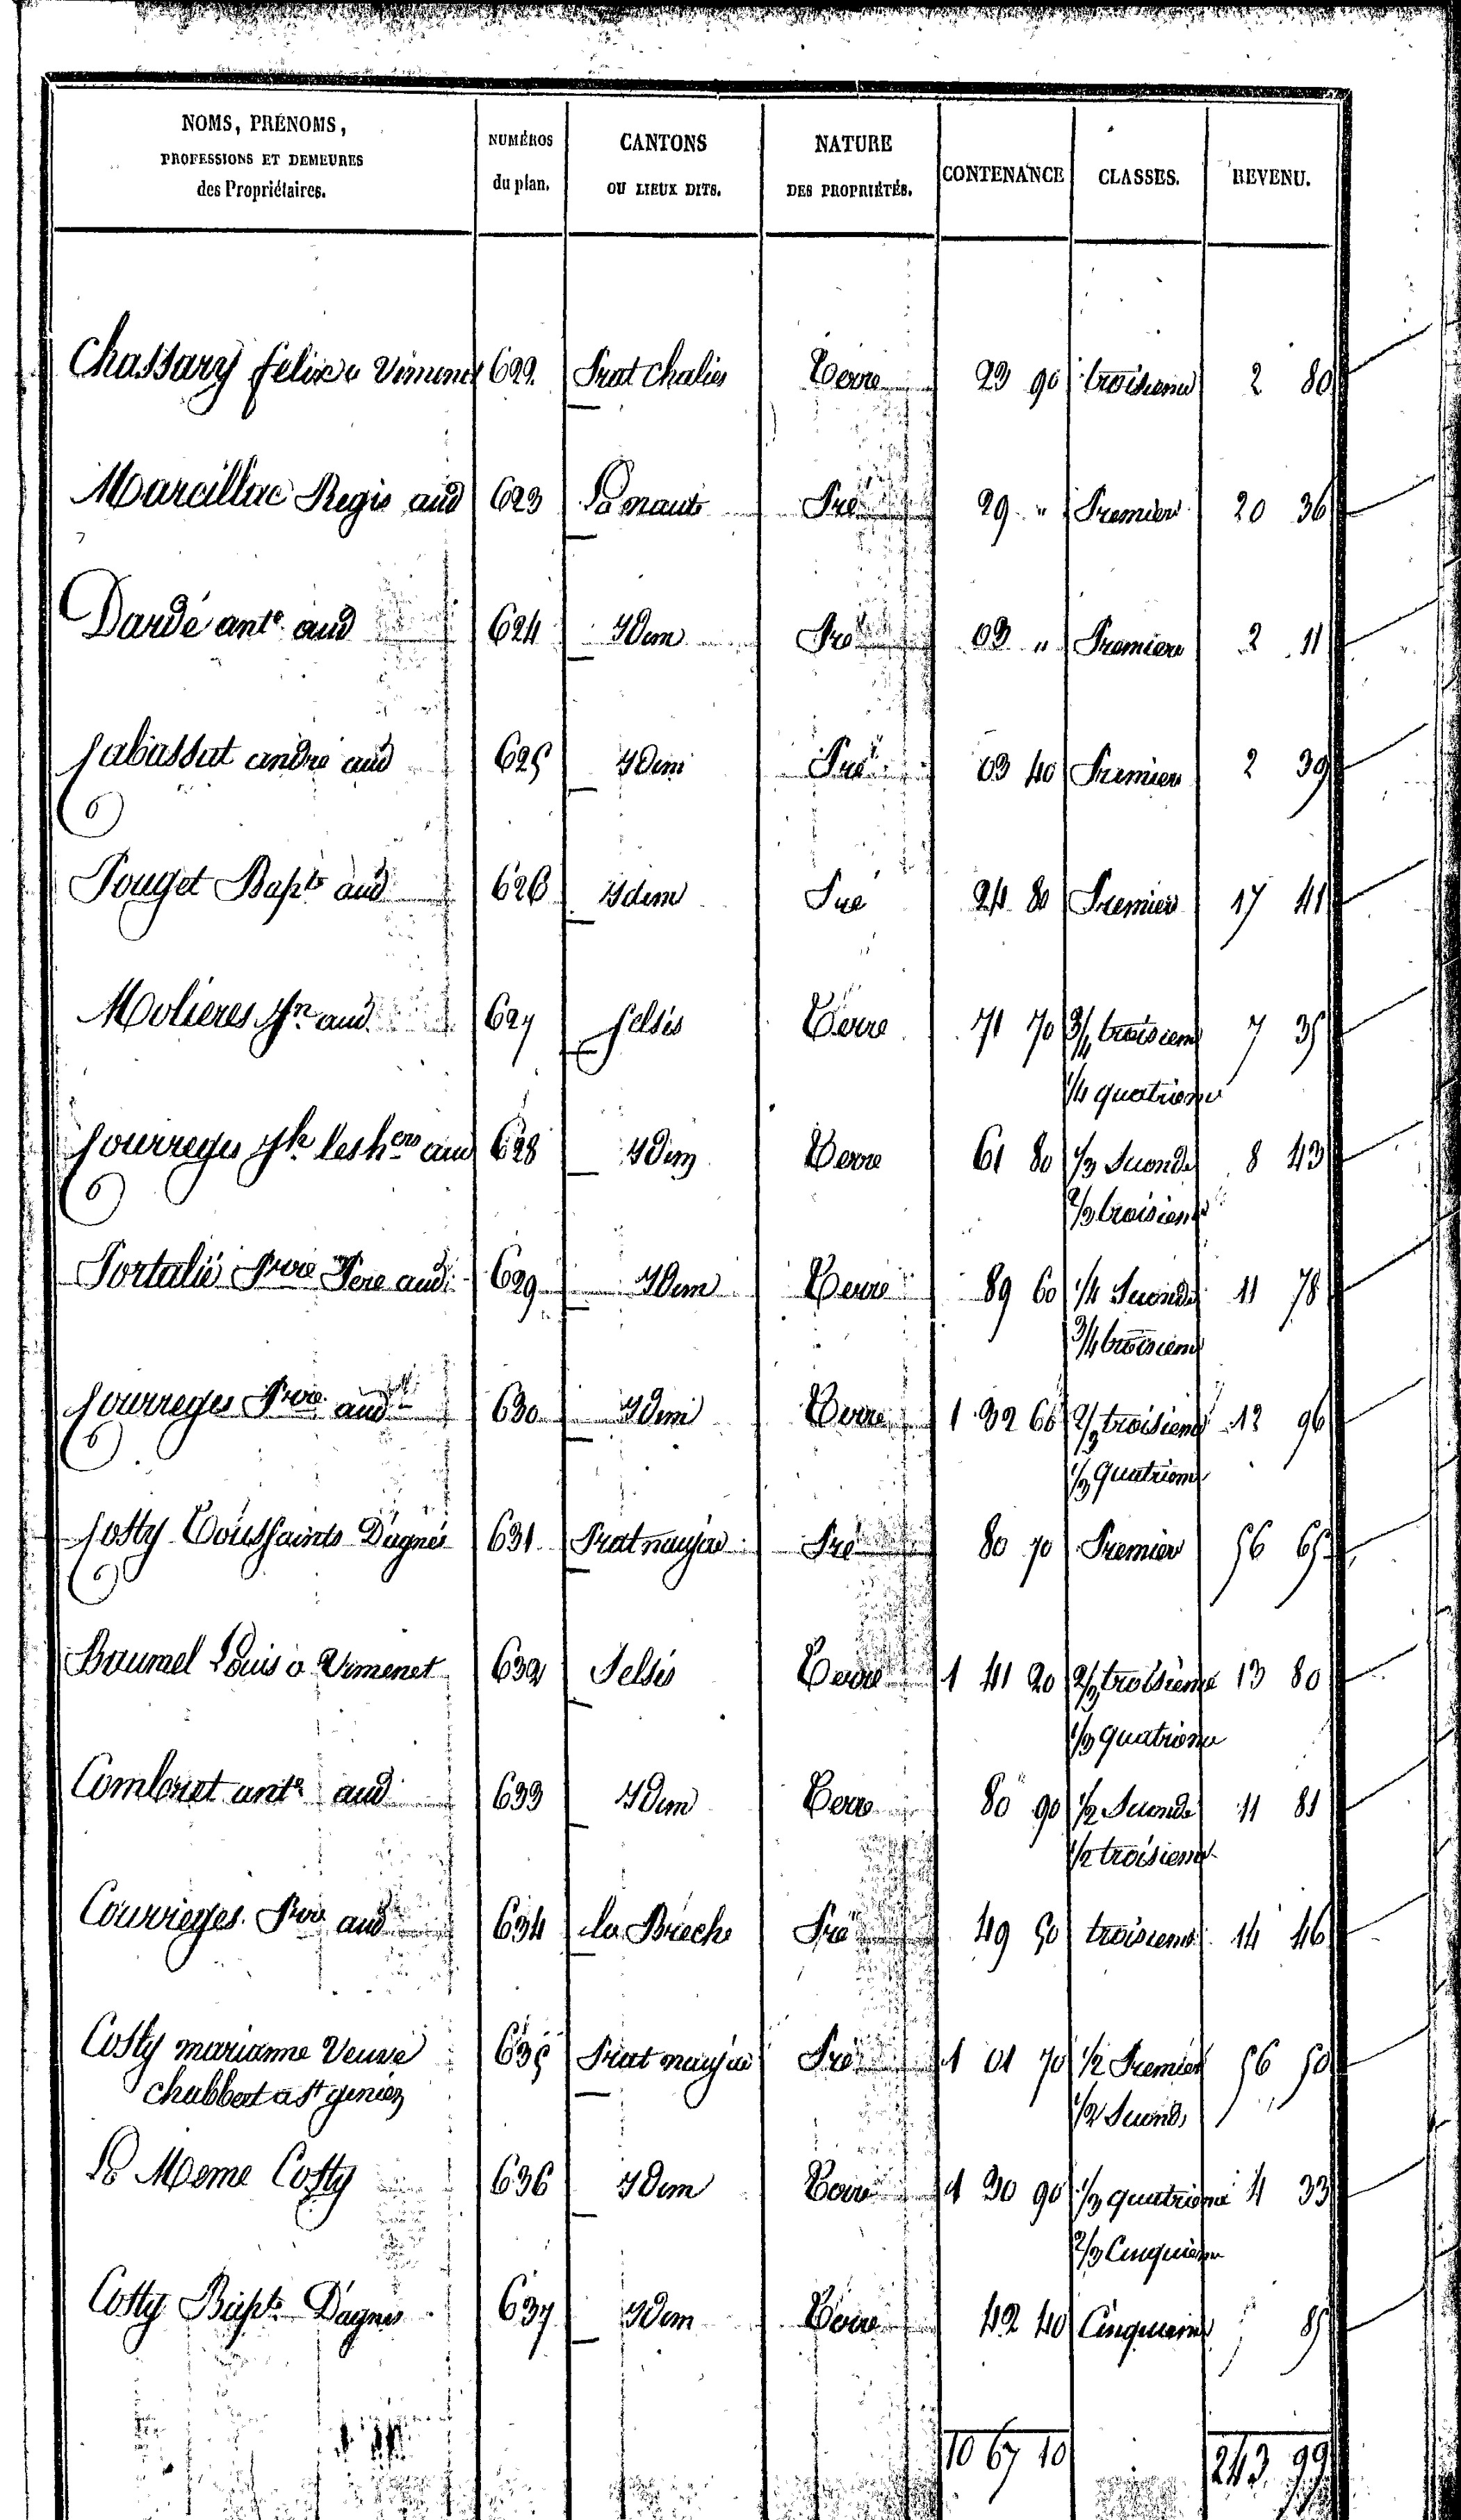 NOMS, PRÉNOMS,
PROFESSIONS ET DEMEURES
des Propriétaires.
NUMÉROS
du plan.
CANTONS
OU LIEUX DITS.
NATURE
DES PROPRIÉTÉS.
CONTENANCE
CLASSES.
REVENU.
Chassary felix a Vimenet 622 Prat chalies Terre 23 90 troisieme 2 80
Marcillac Regis aud 623 Pré 29 " Premiere 20 36
Dardé ante. aud 624 Idem Pré 03 " Premiere 2 11
andré aud 625 Idem Pré 03 40 Premiere 2 39
Pouget Bapte aud 626 Idem Pré 24 80 Premiere 17 41
Molieres aud 627 Selsis Terre 71 70 3/4 troisieme 7 35
1/4 quatrieme
les hers aud 628 Idem Terre 61 80 1/3 Seconde 8 43
2/3 troisieme
Portalié Pere aud. 629 Idem Terre 89 60 1/4 Seconde 11 78
3/4 troisieme
aud 630 Idem Terre 1 32 60 2/3 troisieme 12 96
1/3 quatrieme
Costy Toussaints Dagnés 631 Prat naujac Pré 80 70 Premiere 56 65
Baumel Louis a Vimenet 632 Selsis Terre 1 41 20 2/3 troisieme 13 80
1/3 quatrieme
Comboret ante aud 633 Idem Terre 80 90 1/2 Seconde 11 81
1/2 troisieme
Courreges Prre aud 634 la Breche Pré 49 50 troisieme 14 46
Costy marianne Veuve 635 Prat naujac Pré 1 01 70 1/2 Premiere 56 50
chabbert a St geniez 1/2 Seconde
Le Meme Costy 636 Idem Terre 1 30 90 1/3 quatrieme 4 33
2/3 Cinquieme
Costy Bapte Dagnes 637 Idem Terre 42 40 Cinquieme " 85
10 67 10 243 99